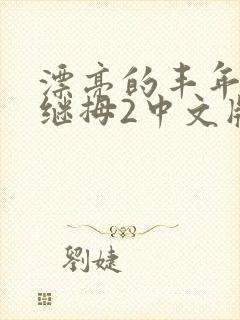 漂亮的丰年
继拇2中文
劉婕